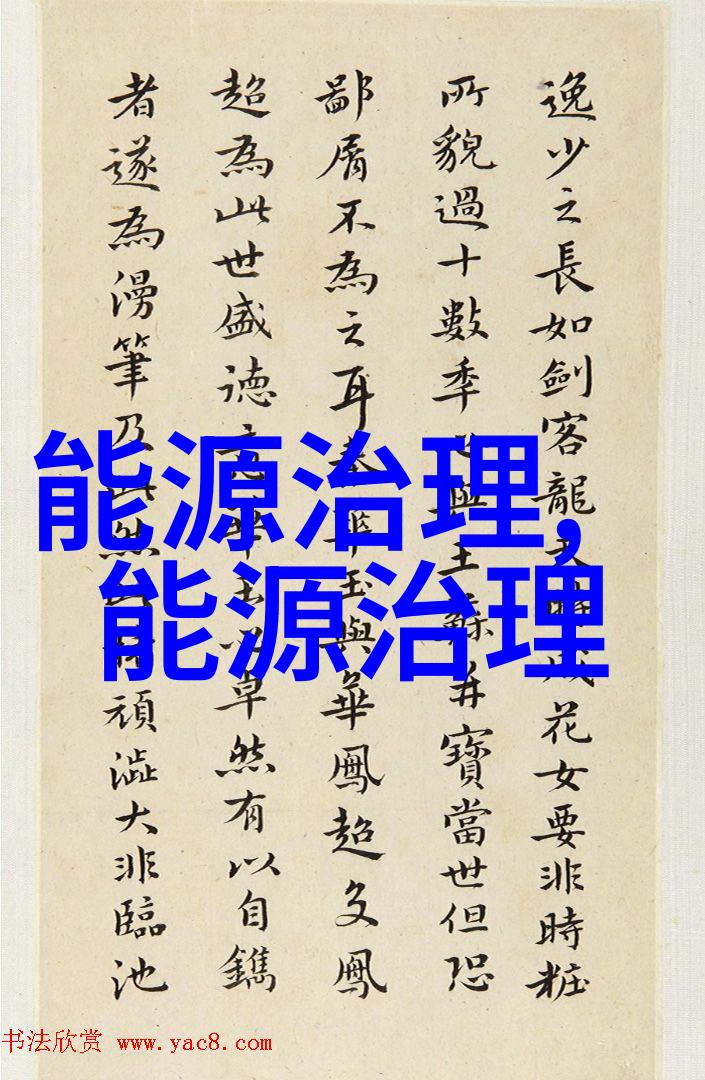 逸少之長如劍客龍花女要非時粧
所貌過十數季與王并寶當世但恐
鄙屑不為之耳玉與華鳳超文鳳
超為此世盛德卓然有以自鐫
者遂為漫筆及此然頑澁大非臨池
能源治理,
能源治理
书法欣赏 www.yac8.com